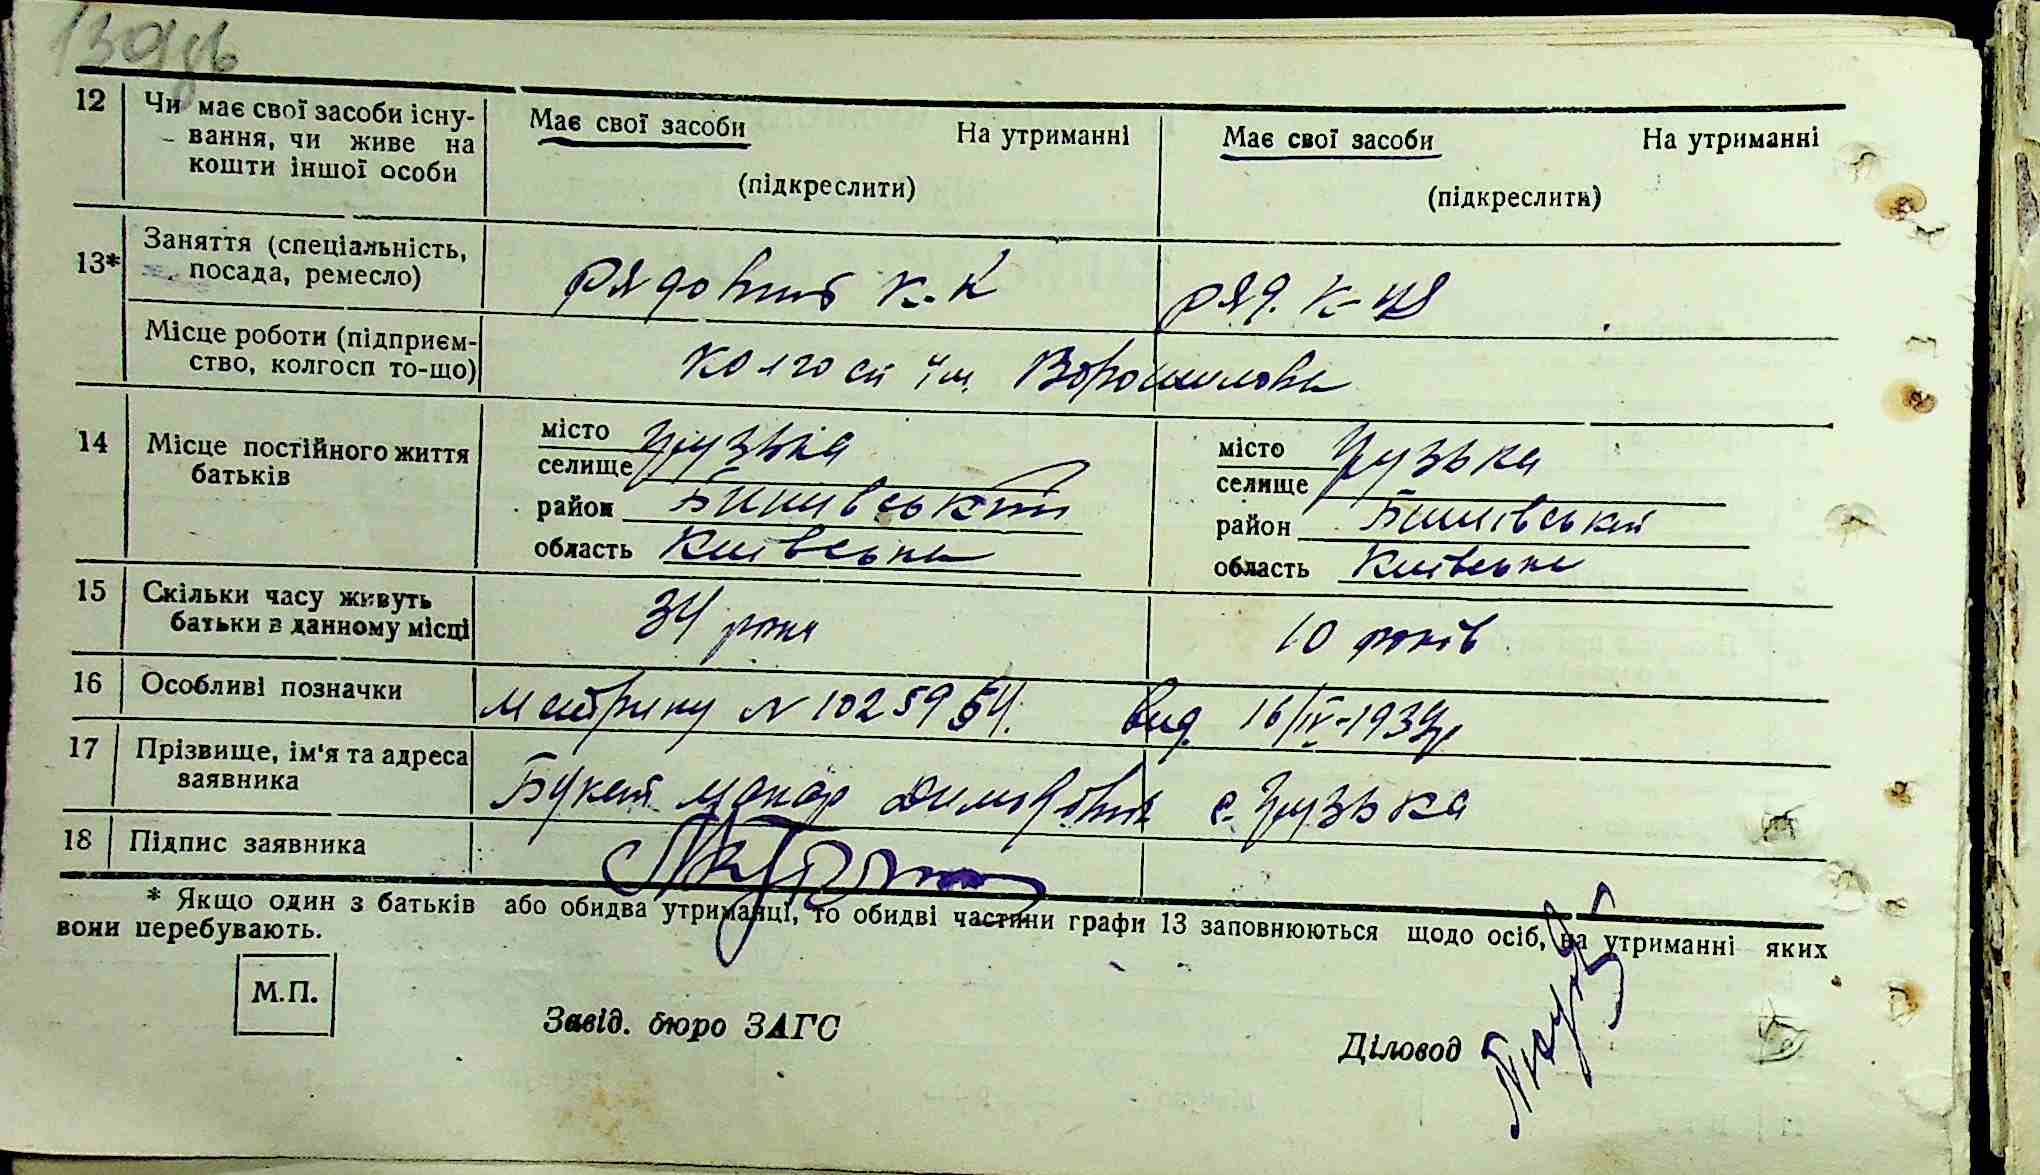 130зв
12 Чи має свої засоби існу- Має свої засоби На утриманні Має свої засоби На утриманні
вання, чи живе на
кошти іншої особи (підкреслити) (підкреслити)
13* Заняття (спеціальність, рядовий к.к ряд. к-ця
посада, ремесло)
Місце роботи (підприєм- колгосп ім. Ворошилова
ство, колгосп то-що)
14 Місце постійного життя місто Грузька місто Грузька
батьків селище селище
район Бишівський район Бишівський
область Київська область Київська
15 Скільки часу живуть 34 роки 10 років
батьки в данному місці
16 Особливі позначки метрику N 1025954. вид. 16/IV-1939р
17 Прізвище, ім'я та адреса
заявника Макар с. Грузька
18 Підпис заявника
* Якщо один з батьків або обидва утриманці, то обидві частини графи 13 заповнюються щодо осіб, на утриманні яких
вони перебувають.
М.П.
Завід. бюро ЗАГС
Діловод